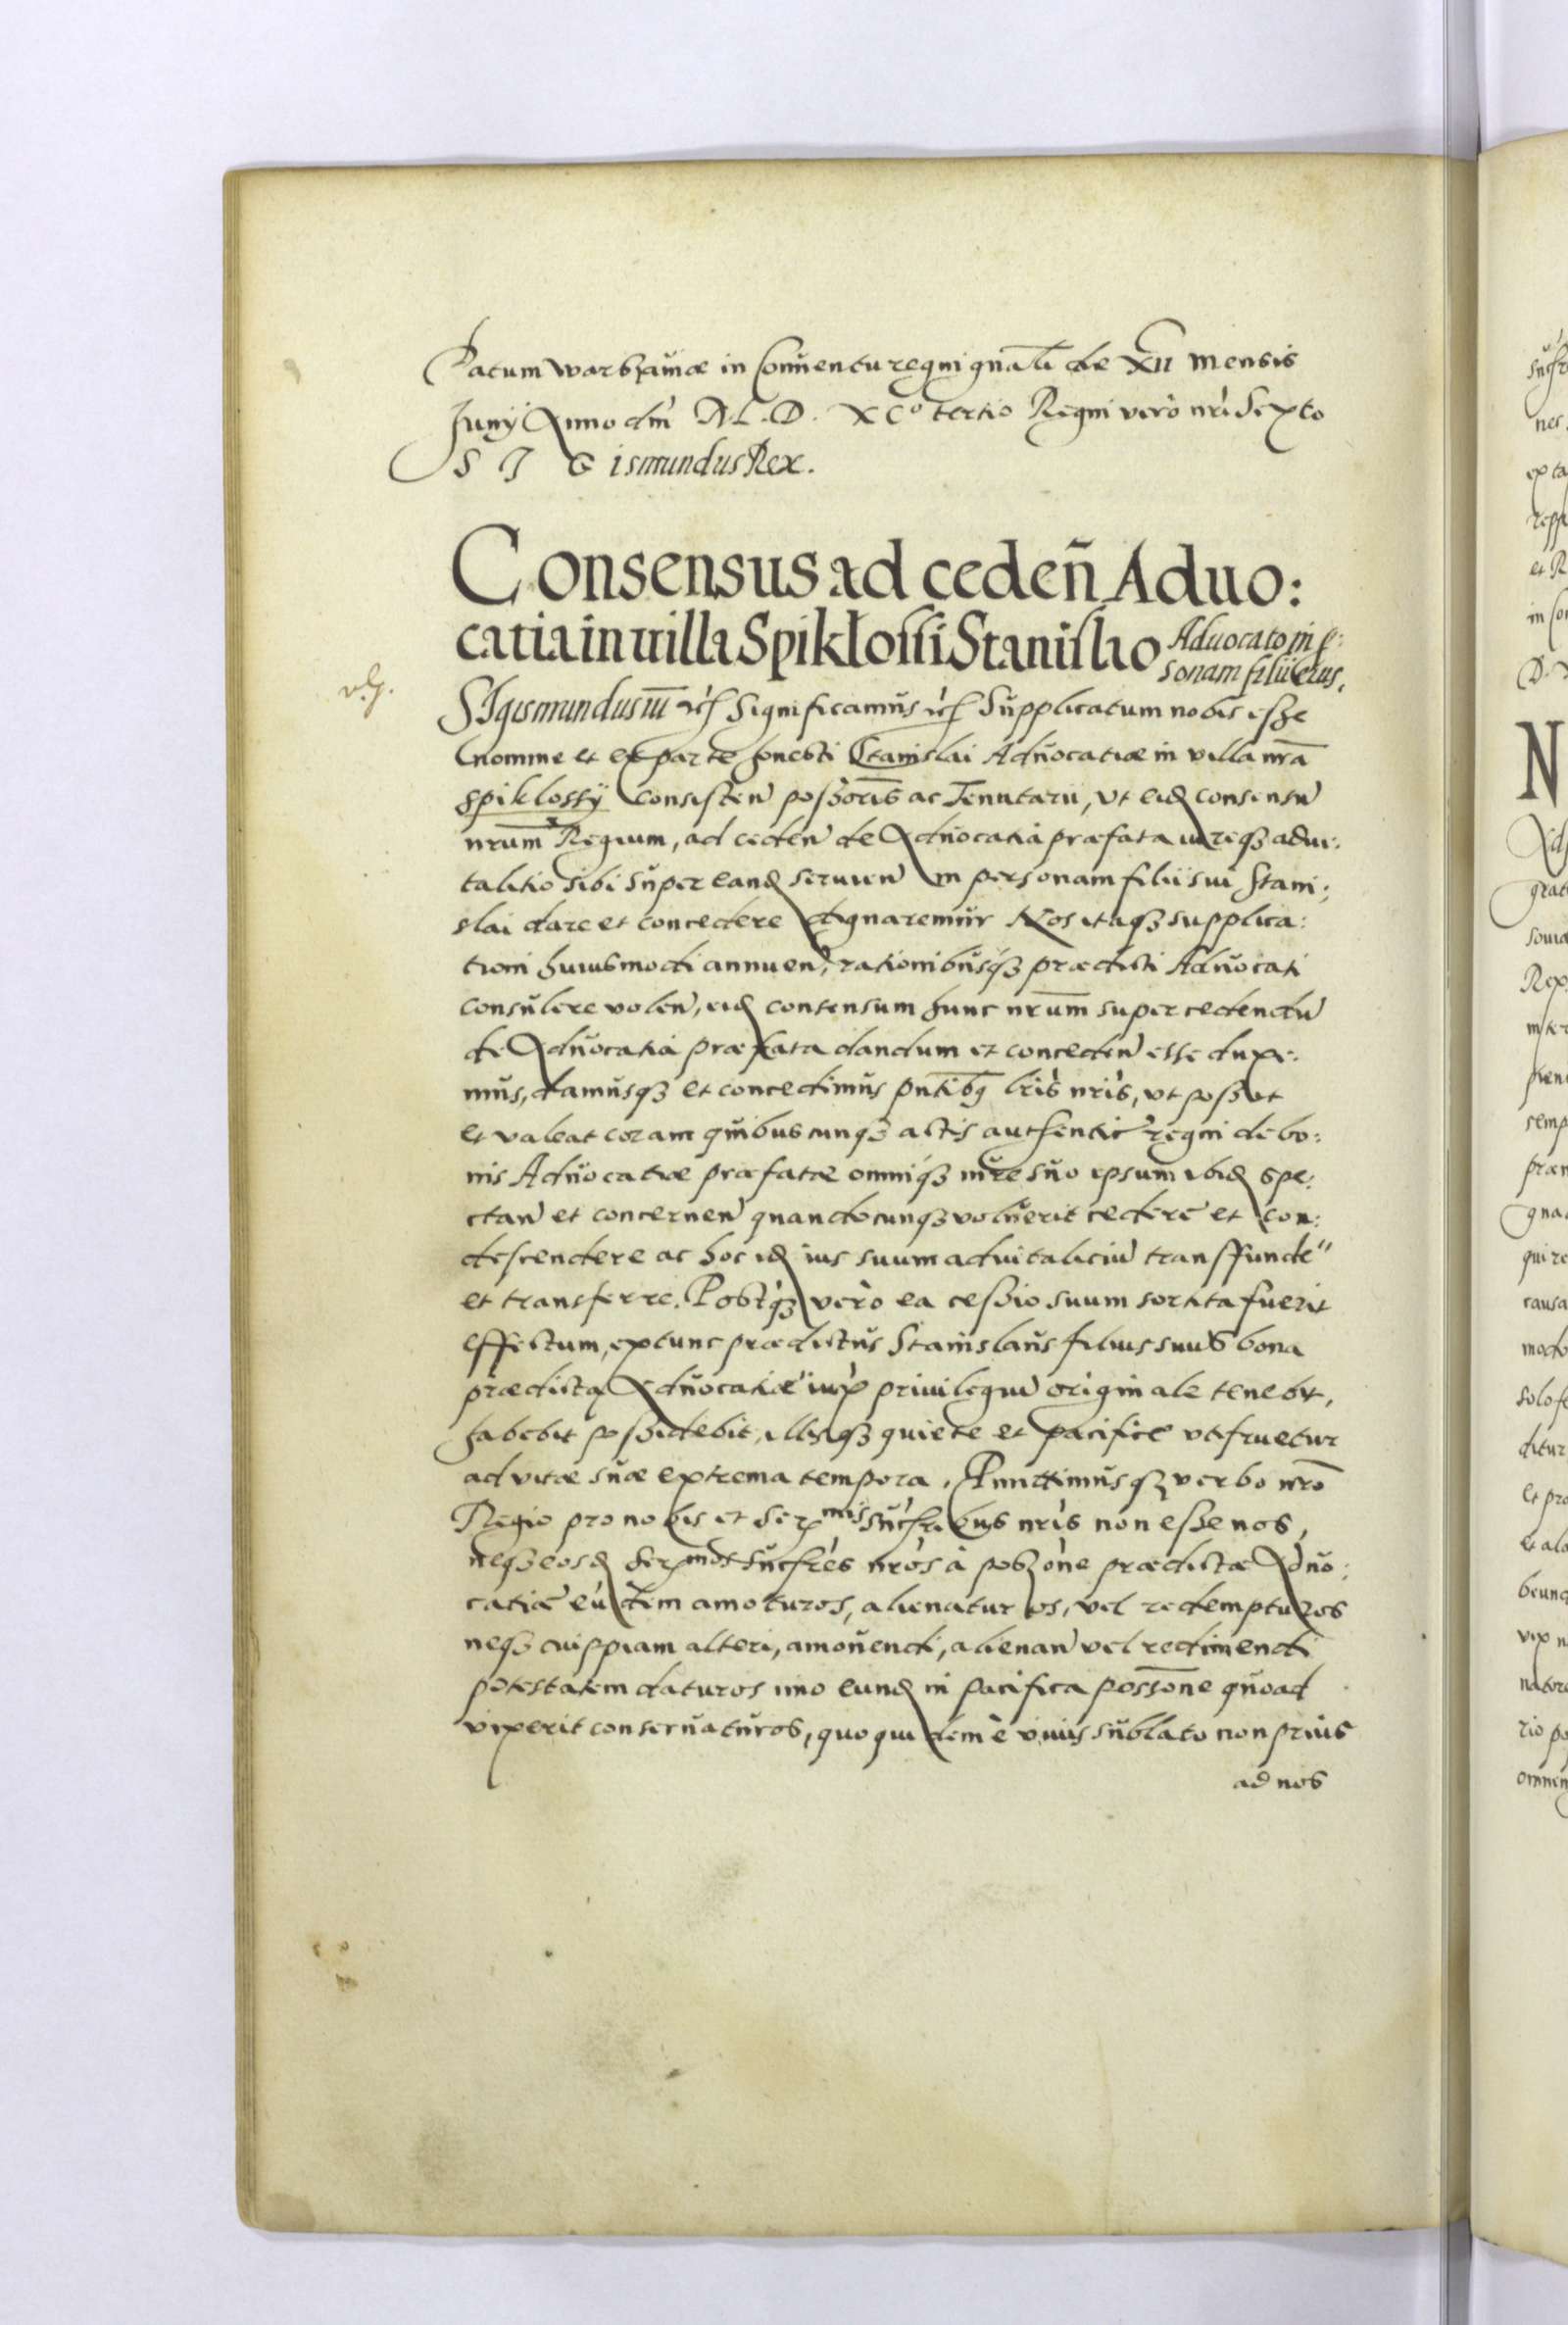 Datum Warszaviae in Conuentu regni gnali die XII mensis
Junÿ Anno dni M.D. XC⁰ tertio Regni verò nri Sexto
SIGismundus Rex.
Consensus ad cedeñ Aduo:
catia in uilla Spiklossi Stanislao Aduocato in p:
sonam filii eius,
SIgismundus III etc Significamus etc Supplicatum nobis esse
nomine et ex parte honesti Stanislai Aduocatiae in villa nra
Spiklossÿ consisten possoris ac Tenutarii, vt eid consensu
nrum Regium, ad ceden de Aduocatia praefata iureq3 adui:
talitio sibi super eand seruien in personam filii sui Stani:
slai dare et concedere dignaremur Nos itaq3 supplica:
tioni huiusmodi annuen, rationibusq3 praedicti Aduocati
consulere volen, eid consensum hunc nrum super cedendu
de Aduocatia praefata dandum et conceden esse duxi:
mus, damusq3 et concedimus pntibq lris nris, vt possit
et valeat coram quibuscunq3 actis authentic regni de bo:
nis Aduocatiae praefatae omniq3 iure suo ipsum ibid spe:
ctan et concernen quandocunq3 voluerit cedere et con:
descendere ac hoc id ius suum aduitaliciu transffunde
et transferre. Postq3 verò ea cessio suum sortita fuerit
effectum, extunc praedictus Stanislaus filius suus bona
praedicta Aduocatiae iux priuilegiu originale tenebit,
habebit possidebit, illisq3 quiete et pacifice vtifruetur
ad vitae suae extrema tempora. Promittimusq3 verbo nro
Regio pro nobis et Serᵐⁱˢ Succribus nris non esse nos,
neq3 eosd Serᵐᵒˢ Succres nros à possone praedictae Aduo:
catiae eundem amoturos, alienaturos, vel redempturos
neq3 cuippiam alteri, amouendi, alienan vel redimendi
potestatem daturos imo eund in pacifica possone quoad
vixerit conseruaturos, quo quidem è viuis sublato non prius
ad nos